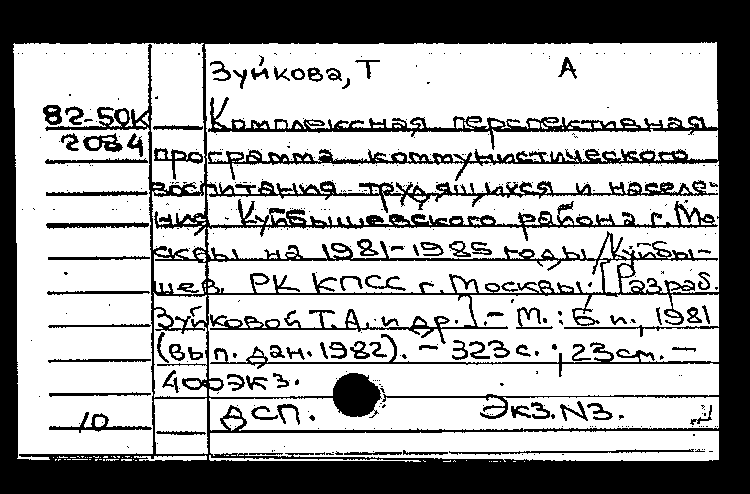 Зуйкова, Т А
82-50К Комплексная перспективная
2034 программа коммунистического
воспитания трудящихся и населе-
ния Куйбышевского района г. Мо-
сквы на 1981-1985 годы / Куйбы-
шев. РК КПСС г. Москвы; [Разраб.
Зуйковой Т.А. и др.]. - М.: Б. и., 1981
(вып. дан. 1982). - 323 с.; 23 см. -
400 экз.
10 ДСП. Экз. N3.